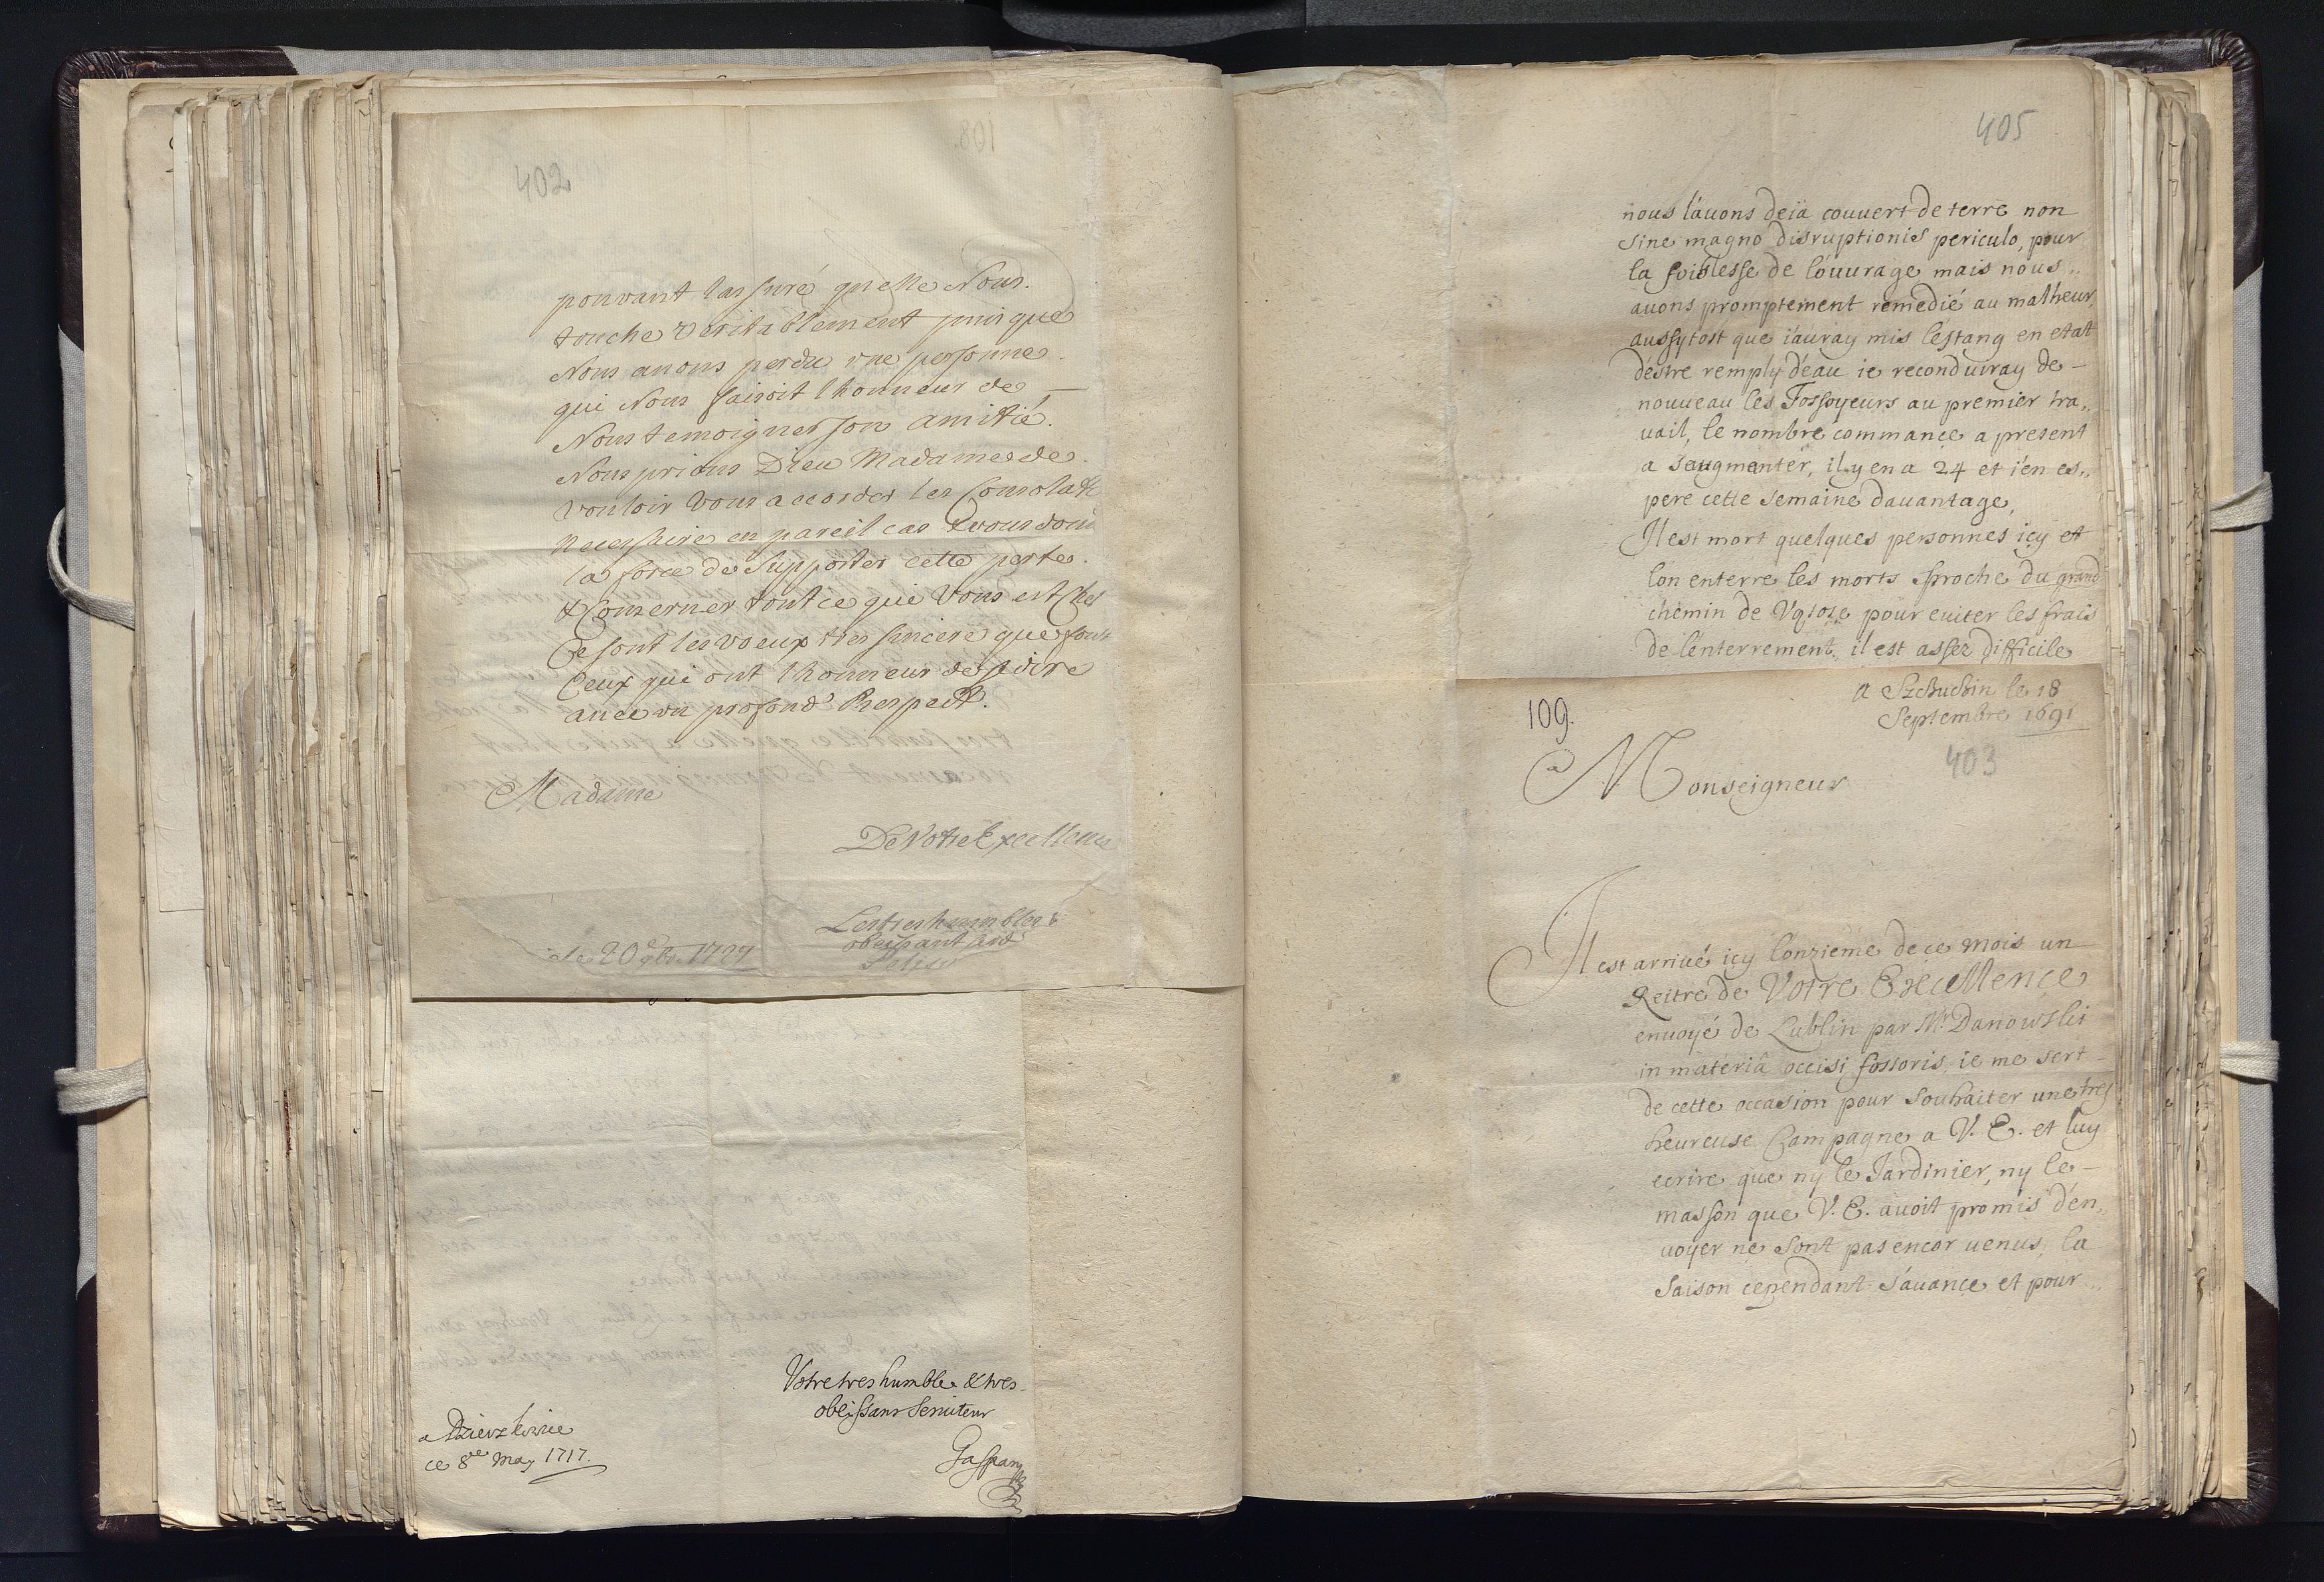 402
pouvant lassuré quelle Nous.
touche veritablement puis que
Nous auons perdu vne personne.
qui Nous faisoit lhonneur de —
Nous temoigner son amitié.
Nous prions Dieu Madame de.
vouloir Vous accorder les Consolat
necessaire en pareil cas & vous
la force de Supporter cette perte.
& Conserner tout ce qui Vous est Cher
Ce sont les voeux tres sincere que font
Ceux qui ont lhonneur de se dire
auec vn profond Respect.
Madame
De Votre Excellence
Les tres humbles &
obeissant
ce 20
Votre tres humble & tres
obeissant Seruiteur
a
ce 8 May 1717.
405
nous l'auons deia couuert de terre non
sine magno disruptionis periculo, pour
la foiblesse de l'ouurage mais nous,,
auons promptement remedié au malheur,
aussytost que i'auray mis lestang en etat
d'estre remply d'eau ie reconduiray de —
nouueau les Fossoyeurs au premier tra,,
uail, le nombre commance a present
a s'augmenter, il y en a 24 et i'en es,,
pere cette semaine dauantage,
Il est mort quelques personnes icy et
lon enterre les morts proche du grand
chemin de pour euiter les frais
de l'enterrement, il est assez difficile
109.
a Szchuchin le 18
Septembre 1691
403
Monseigneur
Il est arriué icy l'onzieme de ce mois un
Reitre de Votre Excellence
enuoyé de Lublin par Mr. Danowski
in materiâ occisi fossoris, ie me sert —
de cette occasion pour souhaiter une tres
heureuse Campagne a V. E. et luy
ecrire que ny le Jardinier, ny le —
masson que V. E. auoit promis d'en,,
uoyer ne sont pas encor uenus, la
saison cependant s'auance et pour